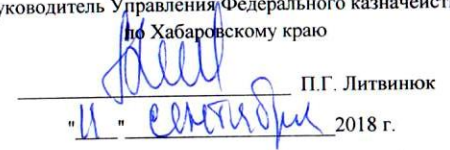 уководитель Управления Федерального казначейст
по Хабаровскому краю
П.Г. Литвинюк
"11" сентября 2018 г.